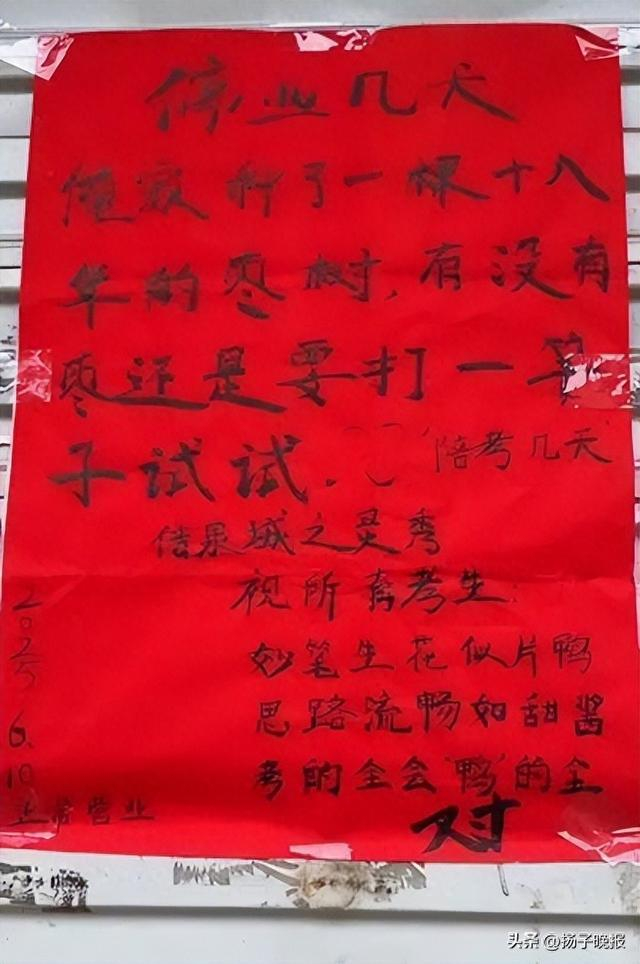 停业几天
俺家种了一棵十八
年的枣树,有没有
枣还是要打一竿
子试试. 陪考几天
借泉城之灵秀
祝所有考生:
妙笔生花似片鸭
思路流畅如甜酱
考的全会“鸭”的全
对
2025.6.10
正常营业
头条 @扬子晚报